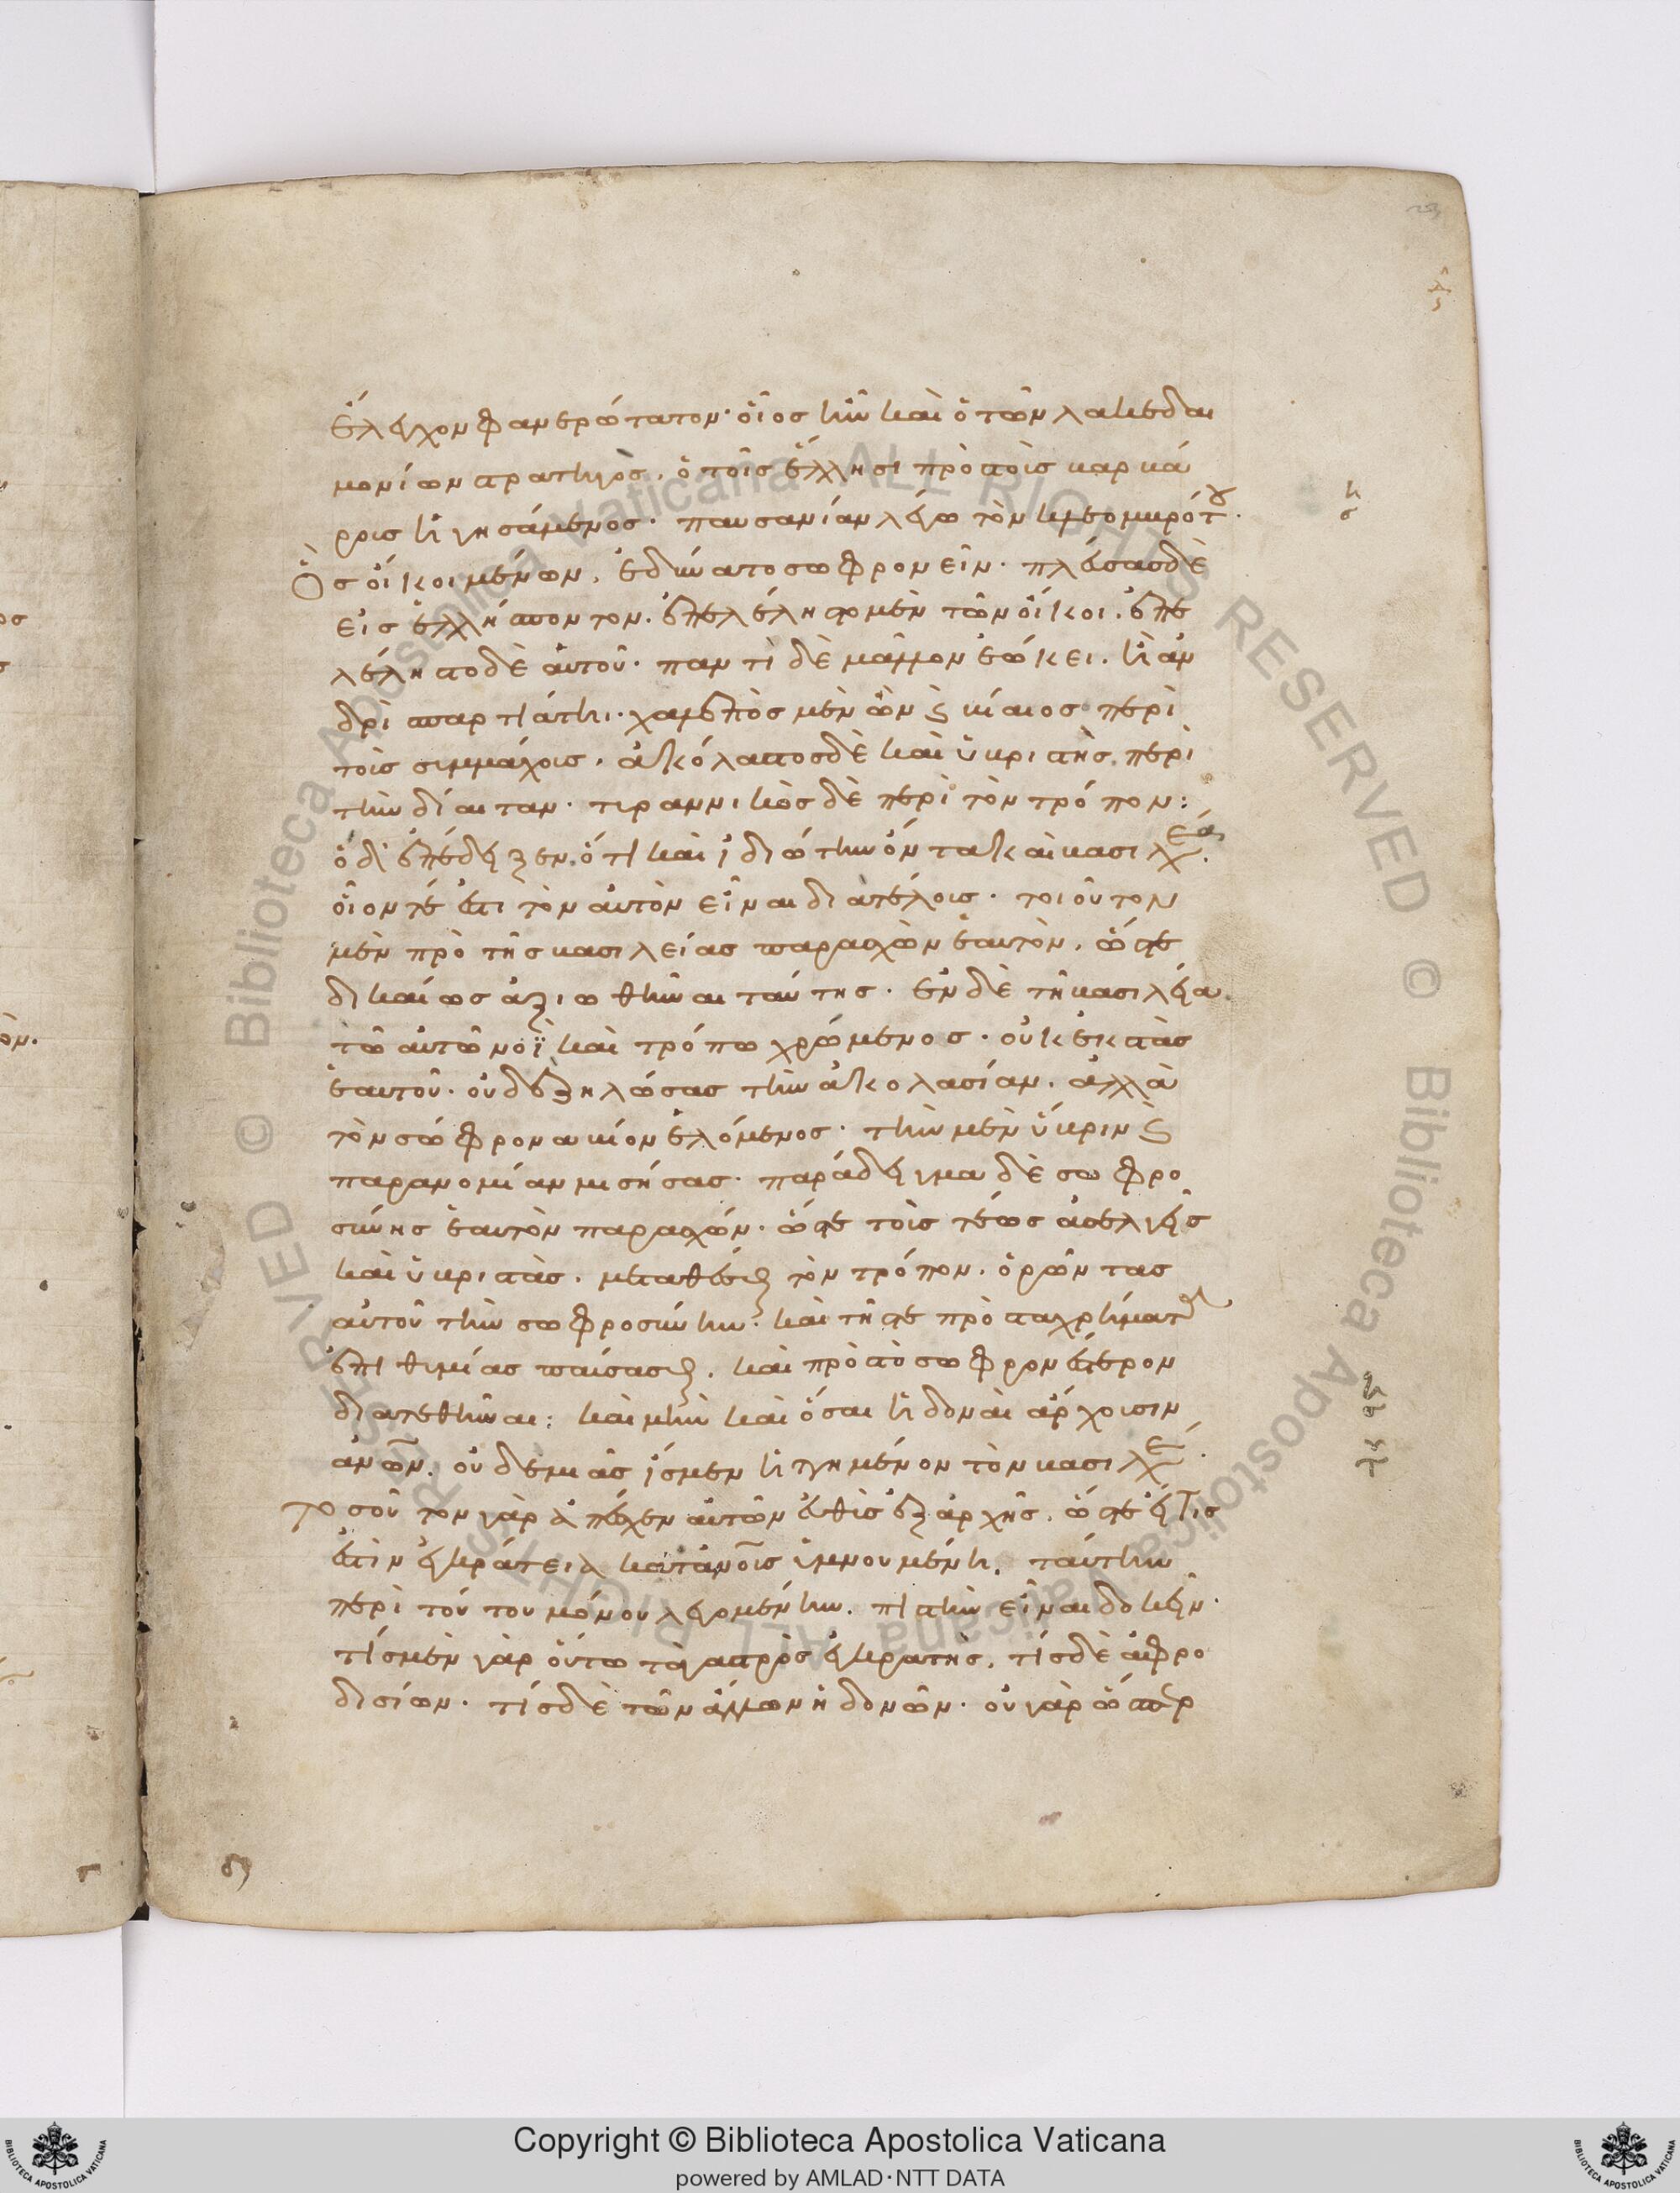 ἔλεγχον φανερώτατον· οἷος ἦν καὶ ὁ τῶν λακεδαι
μονίων στρατηγὸς, ὁ τοῖς ἕλλησι πρὸς τοὺς βαρβά
ρους ἡγησάμενος· παυσανίαν λέγω τὸν κλεομβρότου·
Ὃς οἴκοι μένων, ἐδύνατο σωφρονεῖν· πλεύσας δὲ
εἰς ἑλλήσποντον, ἐπελέληστο μὲν τῶν οἴκοι, ἐπε
λέληστο δὲ αὑτοῦ· παντὶ δὲ μᾶλλον ἐῴκει, ἢ ἀν
δρὶ σπαρτιάτηι· χαλεπὸς μὲν ὢν καὶ βίαιος περὶ
τοὺς συμμάχους, ἀκόλαστος δὲ καὶ ὑβριστὴς περὶ
τὴν δίαιταν· τυραννικὸς δὲ περὶ τὸν τρόπον:
ὁ δ' ἐπέδειξεν, ὅτι καὶ ἰδιώτην ὄντα καὶ βασιλέα,
οἷόν τέ ἐστι τὸν αὐτὸν εἶναι διὰ τέλους· τοιοῦτον
μὲν πρὸ τῆς βασιλείας παρασχὼν ἑαυτὸν, ὥστε
δικαίως ἀξιωθῆναι ταύτης· ἐν δὲ τῇ βασιλείᾳ
τῷ αὐτῷ νοῒ καὶ τρόπω χρώμενος· οὐκ ἐκστὰς
ἑαυτοῦ· οὐδὲ ζηλώσας τὴν ἀκολασίαν, ἀλλὰ
τὸν σώφρονα βίον ἑλόμενος· τὴν μὲν ὕβριν καὶ
παρανομίαν μισήσας· παράδειγμα δὲ σωφρο
σύνης ἑαυτὸν παρασχών· ὥστε τοὺς τέως ἀσελγεῖς
καὶ ὑβριστὰς, μεταθέσθαι τὸν τρόπον, ὁρῶντας
αὐτοῦ τὴν σωφροσύνην· καὶ τῆς τε πρὸς τὰ χρήματα
ἐπιθυμίας παύσασθαι, καὶ πρὸς τὸ σωφρονέστερον
διατεθῆναι: καὶ μὴν καὶ ὅσαι ἡδοναὶ ἄρχουσιν
ἀνων, οὐδεμιᾶς ἴσμεν ἡττημένον τὸν βασιλέα·
τοσοῦτον γὰρ ἀπέχειν αὐτῶν εὐθὺς ἐξ ἀρχῆς, ὥστε εἴ τις
ἐστὶν ἐγκράτεια κατ' ἀνους ὑμνουμένη, ταύτην
περὶ τούτου μόνου λεγομένην, πιστὴν εἶναι δοκεῖν·
τίς μὲν γὰρ οὕτω τὰ γαστρὸς ἐγκρατὴς, τίς δὲ ἀφρο
δισίων· τίς δὲ τῶν ἄλλων ἡδονῶν· οὐ γὰρ ὥσπερ